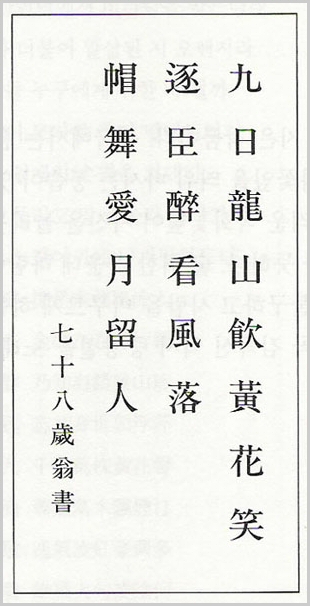 九日龍山飮黃花笑
逐臣醉看風落
帽舞愛月留人
七十八歲翁書